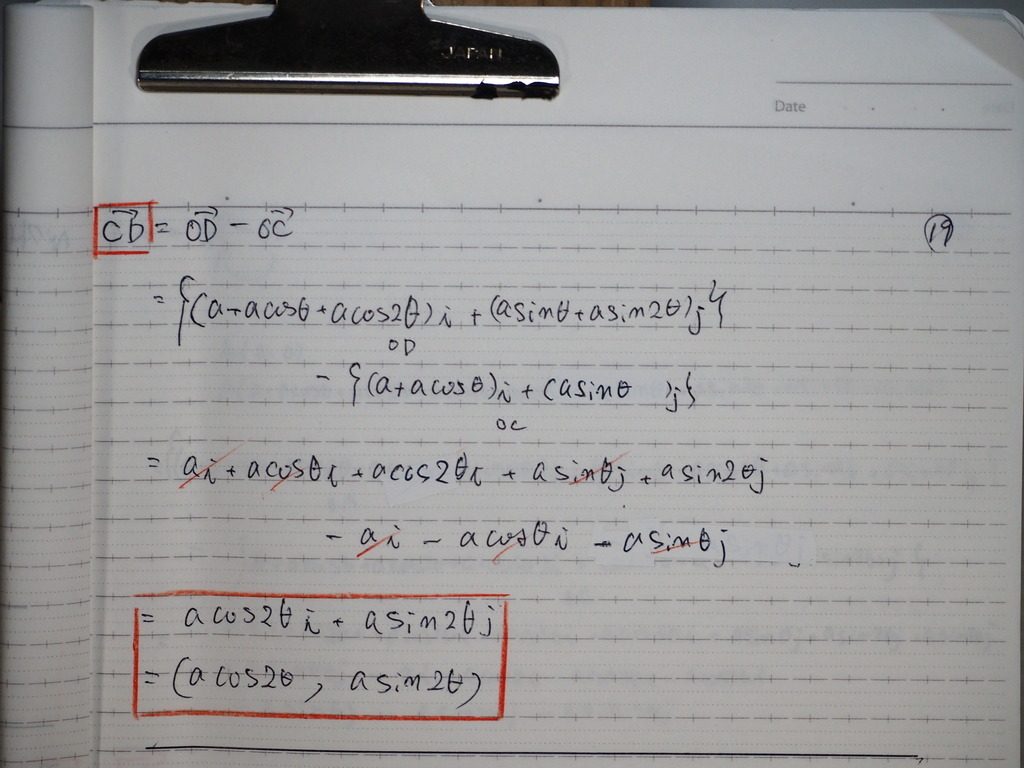 JAPAN
Date
CD = OD - OC ⑲
= {(a+acosθ+acos2θ)i + (asinθ+asin2θ)j}
OD
- {(a+acosθ)i + (asinθ )j}
OC
= ai + acosθi + acos2θi + asinθj + asin2θj
- ai - acosθi - asinθj
= acos2θi + asin2θj
= (acos2θ, asin2θ)